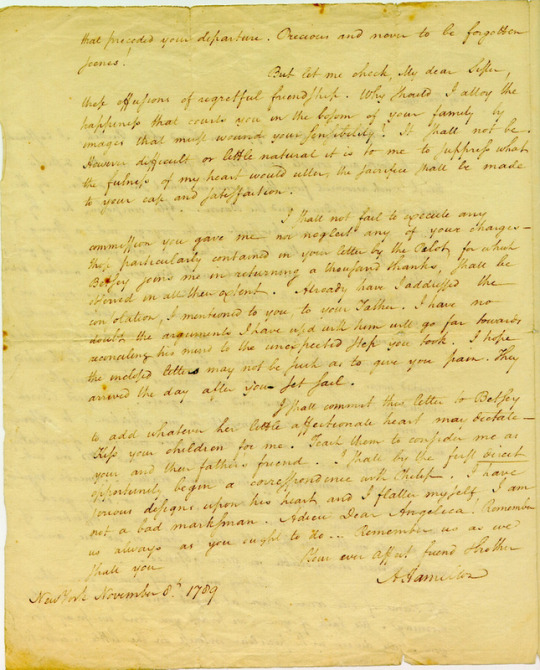 that preceded your departure. Precious and never to be forgotten
scenes!
But let me check, My dear Sister,
these effusions of regretful friendship. Why should I alloy the
happiness that courts you in the bosom of your family by
images that must wound your sensibility? It shall not be.
However difficult or little natural it is to me to suppress what
the fulness of my heart would utter, the sacrifice shall be made
to your ease and satisfaction.
I shall not fail to execute any
commission you gave me nor neglect any of your charges—
those particularly contained in your letter by the Pilot for which
Betsey joins me in returning a thousand thanks, shall be
observed in all their extent. Already have I addressed the
consolation, I mentioned to you to your Father. I have no
doubt the arguments I have used with him will go far towards
reconciling his mind to the unexpected step you took. I hope
the inclosed letters may not be such as to give you pain. They
arrived the day after you set sail.
I shall commit this letter to Betsey
to add whatever her little affectionate heart may dictate—
Kiss your children for me. Teach them to consider me as
your and their father's friend. I shall by the first direct
opportunity begin a correspondence with Philip. I have
serious designs upon his heart and I flatter myself, I am
not a bad marksman. Adieu Dear Angelica. Remember
us always as you ought to do... Remember us as we
shall you
Your ever affect friend & brother
A Hamilton
New York November 8th 1789